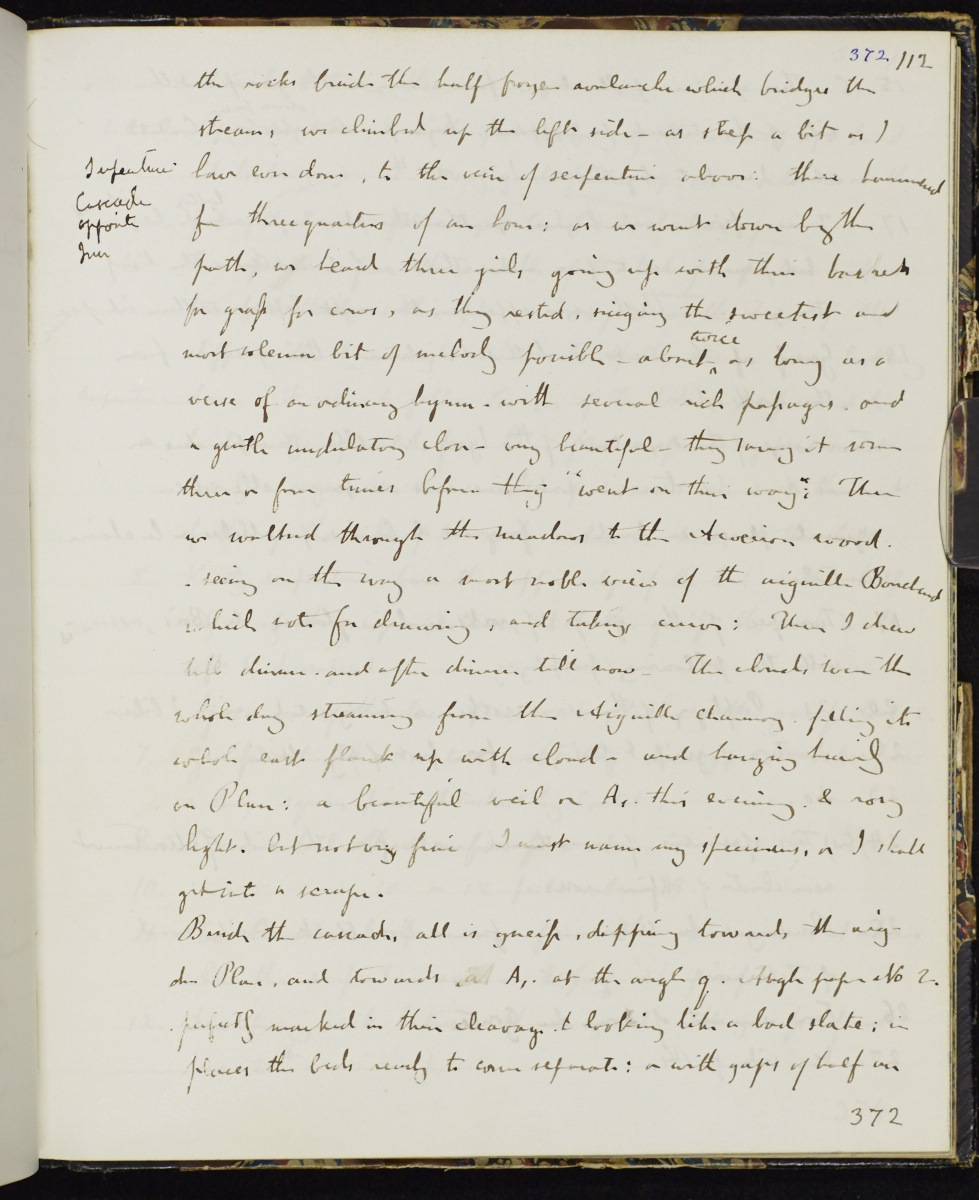 372 112
the rocks beside the half frozen avalanche which bridges the
stream, we climbed up the left side - as steep a bit as I
Serpentine
Cascade
opposite
Inn
have ever done, to the vein of serpentine above: there hammered
for three quarters of an hour: as we went down by the
path, we heard three girls going up with their baskets
for grass for cows, as they rested, singing the sweetest and
most solemn bit of melody possible - about twice as long as a
verse of an ordinary hymn - with several rich passages. and
a gentle undulatory close - very beautiful - they sang it some
three or four times before they "went on their way": Then
we walked through the meadows to the Arveron wood.
- seeing on the way a most noble view of the aiguille Bouchard
which note for drawing, and taking curves: Then I drew
till dinner. and after dinner till now - The clouds were the
whole day streaming from the Aiguille Charmoz. filling its
whole east flank up with cloud - and hanging heavily
on Plan: a beautiful veil on A,. this evening. & rosy
light. but not very fine I must name my specimens, or I shall
get into a scrape.
Beside the cascade, all is gneiss, dipping towards the aig-
du Plan, and towards A,. at the angle q. Angle paper No 2.
perfectly marked in their cleavage. & looking like a bad slate; in
places the beds ready to come separate: or with gaps of half an
372